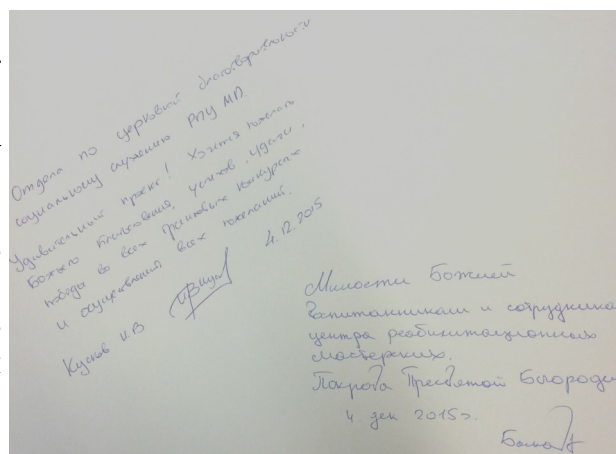 Отдела по церковной благотворительности
социальному служению РПЦ МП
Удивительный проект! Хочется пожелать
Божьего благословения, успехов, удачи,
победы во всех грантовых конкурсах
и осуществления всех желаний.
4.12.2015
Кусков И.В
Милости Божией
воспитанникам и сотрудника
центра реабилитационных
мастерских.
Покрова Пресвятой Богороди
4 дек 2015г.